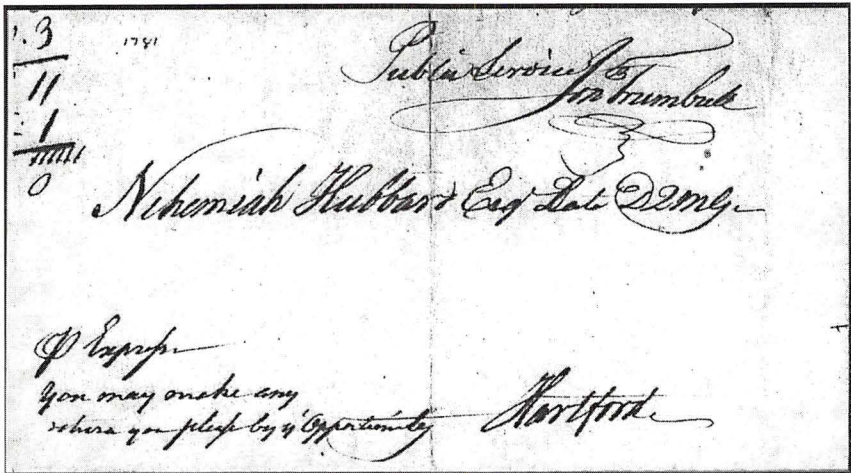 3
1781
Public Service
Jon Trumbull
11
1
11111
0
Nehemiah Hubbard Esqr Late DQMG.
⅌ Express
You may make any
return you please by ye Opportunity
Hartford